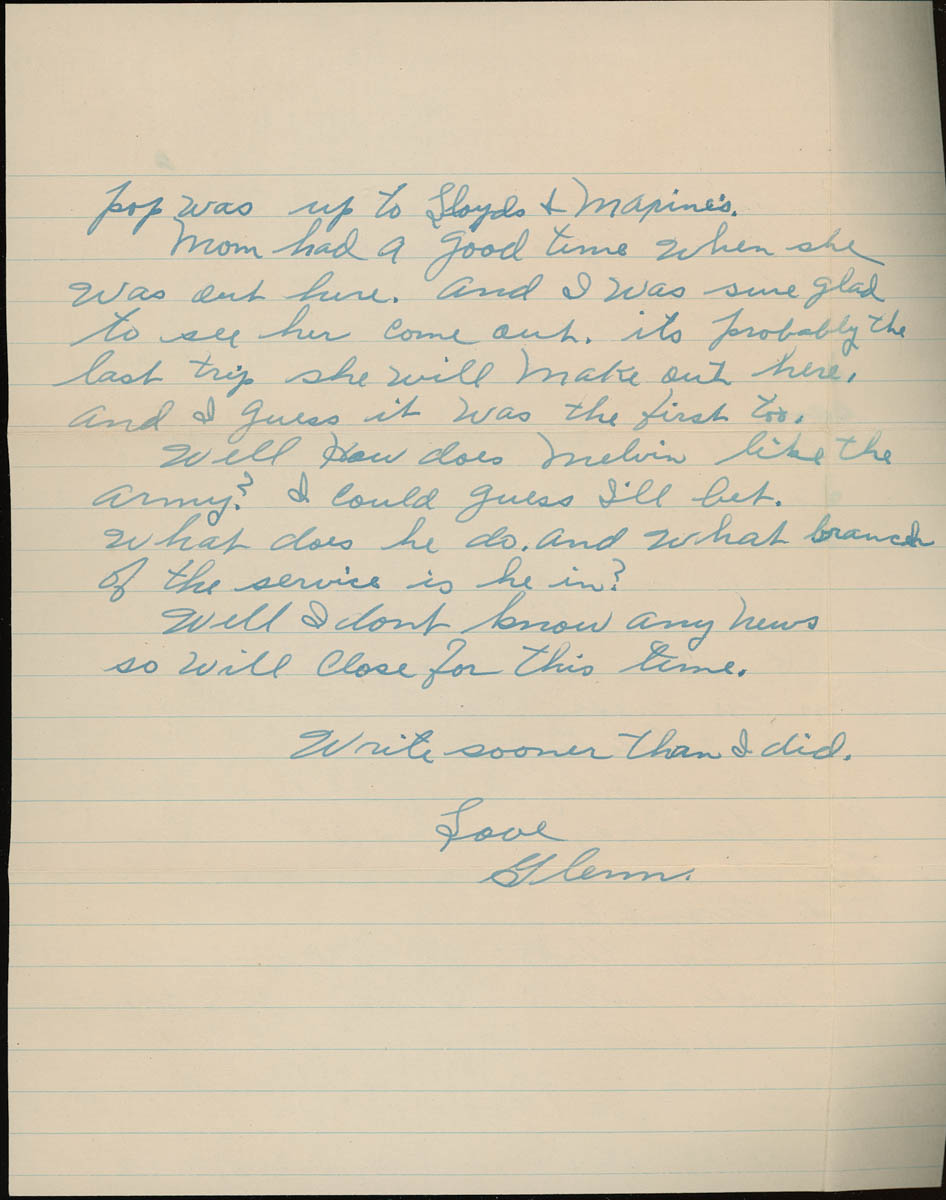 pop was up to Lloyds & Maxine's.
Mom had a good time when she
was out here. And I was sure glad
to see her come out. its probably the
last trip she will make out here.
and I guess it was the first too.
Well How does Melvin like the
army? I could guess I'll bet.
What does he do. and what branch
of the service is he in?
Well I dont know any news
so will close for this time.
Write sooner than I did.
Love
Glenn.